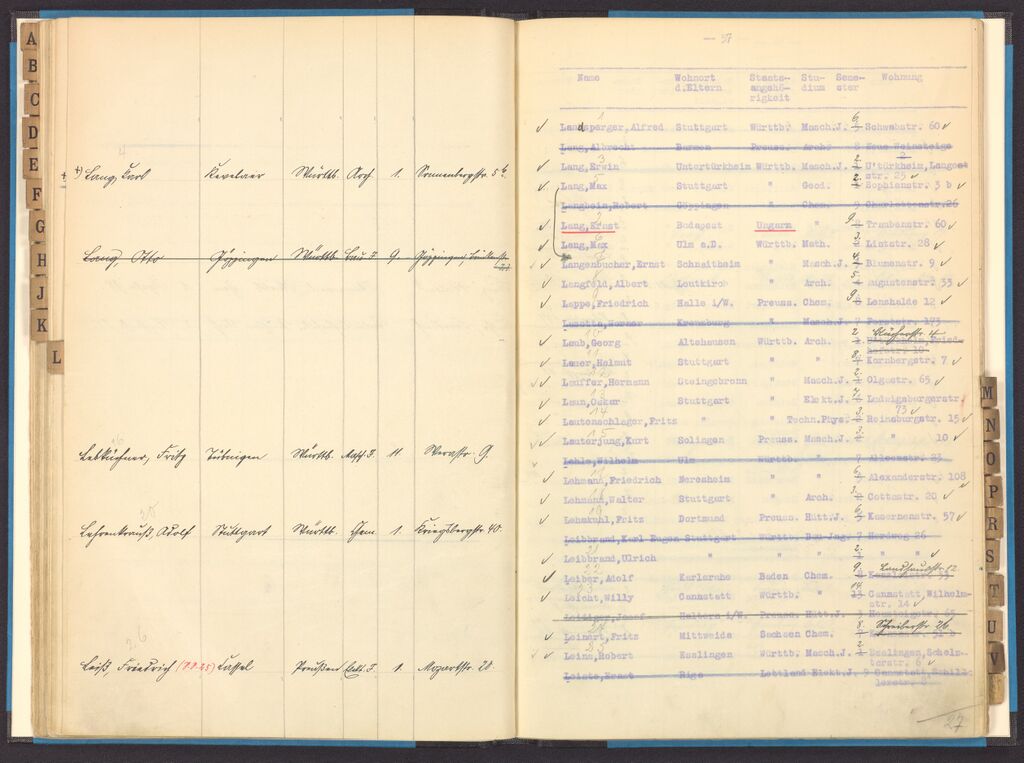 A
B
C
D
E
F
G
H
J
K
L
Lang, Karl Kevelaer Württb. Arch. 1. Sonnenbergstr. 5 b.
Lang, Otto Göppingen Württb. Bau-I. 9. Göppingen,
Lebküchner, Fritz Tübingen Württb. Masch.I. 11 Werastr. 9
Lehrenkrauß, Adolf Stuttgart Württb. Chem. 1. Kriegsbergstr. 40.
26
Leiß, Friedrich Cassel Preußen 1. Mozartstr. 20.
— 37
Name Wohnort Staats- Stu- Seme- Wohnung
d.Eltern angehö- dium ster
rigkeit
Landsperger, Alfred Stuttgart Württb. Masch.J. 6 Schwabstr. 60
Lang, Albrecht Barmen Preuss. Arch. 8 Neue Weinsteige
2
Lang, Erwin Untertürkheim Württb. Masch.J. 2 U'türkheim, Langes
str. 25
Lang, Max Stuttgart " Geod. 2 Sophienstr. 3 b
Langbein, Robert Göppingen " Chem. 9 Charlottenstr. 26
Lang, Ernst Budapest Ungarn " 9 Traubenstr. 60
Lang, Max Ulm a.D. Württb. Math. 3 Liststr. 28
Langenbucher, Ernst Schnaitheim " Masch.J. 4 Blumenstr. 9
Langfeld, Albert Leutkirch " Arch. 5 Augustenstr. 33
Lappe, Friedrich Halle i/W. Preuss. Chem. 9 Lenzhalde 12
Laschta, Werner Kreuzburg " Masch.J. 7 Forststr. 173
Blücherstr. 4
Laub, Georg Altshausen Württb. Arch. 2
Lauer, Helmut Stuttgart " " 8 Kornbergstr. 7
Lauffer, Hermann Steingebronn " Masch.J. 2 Olgastr. 65
Laun, Oskar Stuttgart " Elekt.J. 7 Ludwigsburgerstr.
73
Lautenschlager, Fritz " " Techn.Phys. 3 Reinsburgstr. 15
Lauterjung, Kurt Solingen Preuss. Masch.J. 3 " 10
Lehle, Wilhelm Ulm Württb. " 7 Alleenstr. 23
Lehmann, Friedrich Neresheim " " 6 Alexanderstr. 108
Lehmann, Walter Stuttgart " Arch. 3 Cottastr. 20
Lehmkuhl, Fritz Dortmund Preuss. Hütt.J. 6 Kasernenstr. 57
Leibbrand, Karl Eugen Stuttgart Württb. Bau-Ing. 7 Herdweg 26
Leibbrand, Ulrich " " " 2 " "
Landhausstr. 12
Leiber, Adolf Karlsruhe Baden Chem. 9
Leicht, Willy Cannstatt Württb. " 14 Cannstatt, Wilhelm-
str. 14
Leidiger, Josef Haltern i/W. Preuss. Hütt.J. 3 Neusteigstr. 65
Schreiberstr. 26
Leinert, Fritz Mittweida Sachsen Chem. 8
Leins, Robert Esslingen Württb. Masch.J. 2 Esslingen, Schelz-
terstr. 6
Leiste, Ernst Riga Lettland Elekt.J. 9 Cannstatt, Schill
lerstr. 8
27
M
N
O
P
R
S
T
U
V